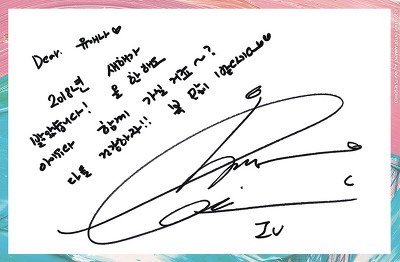 Dear. 유애나♥
2018년 새해가
밝았습니다! 올 한해도
아이유와 함께 가실 거죠~?
다들 건강하자!! 복 많이 받으세요♥♥
IU